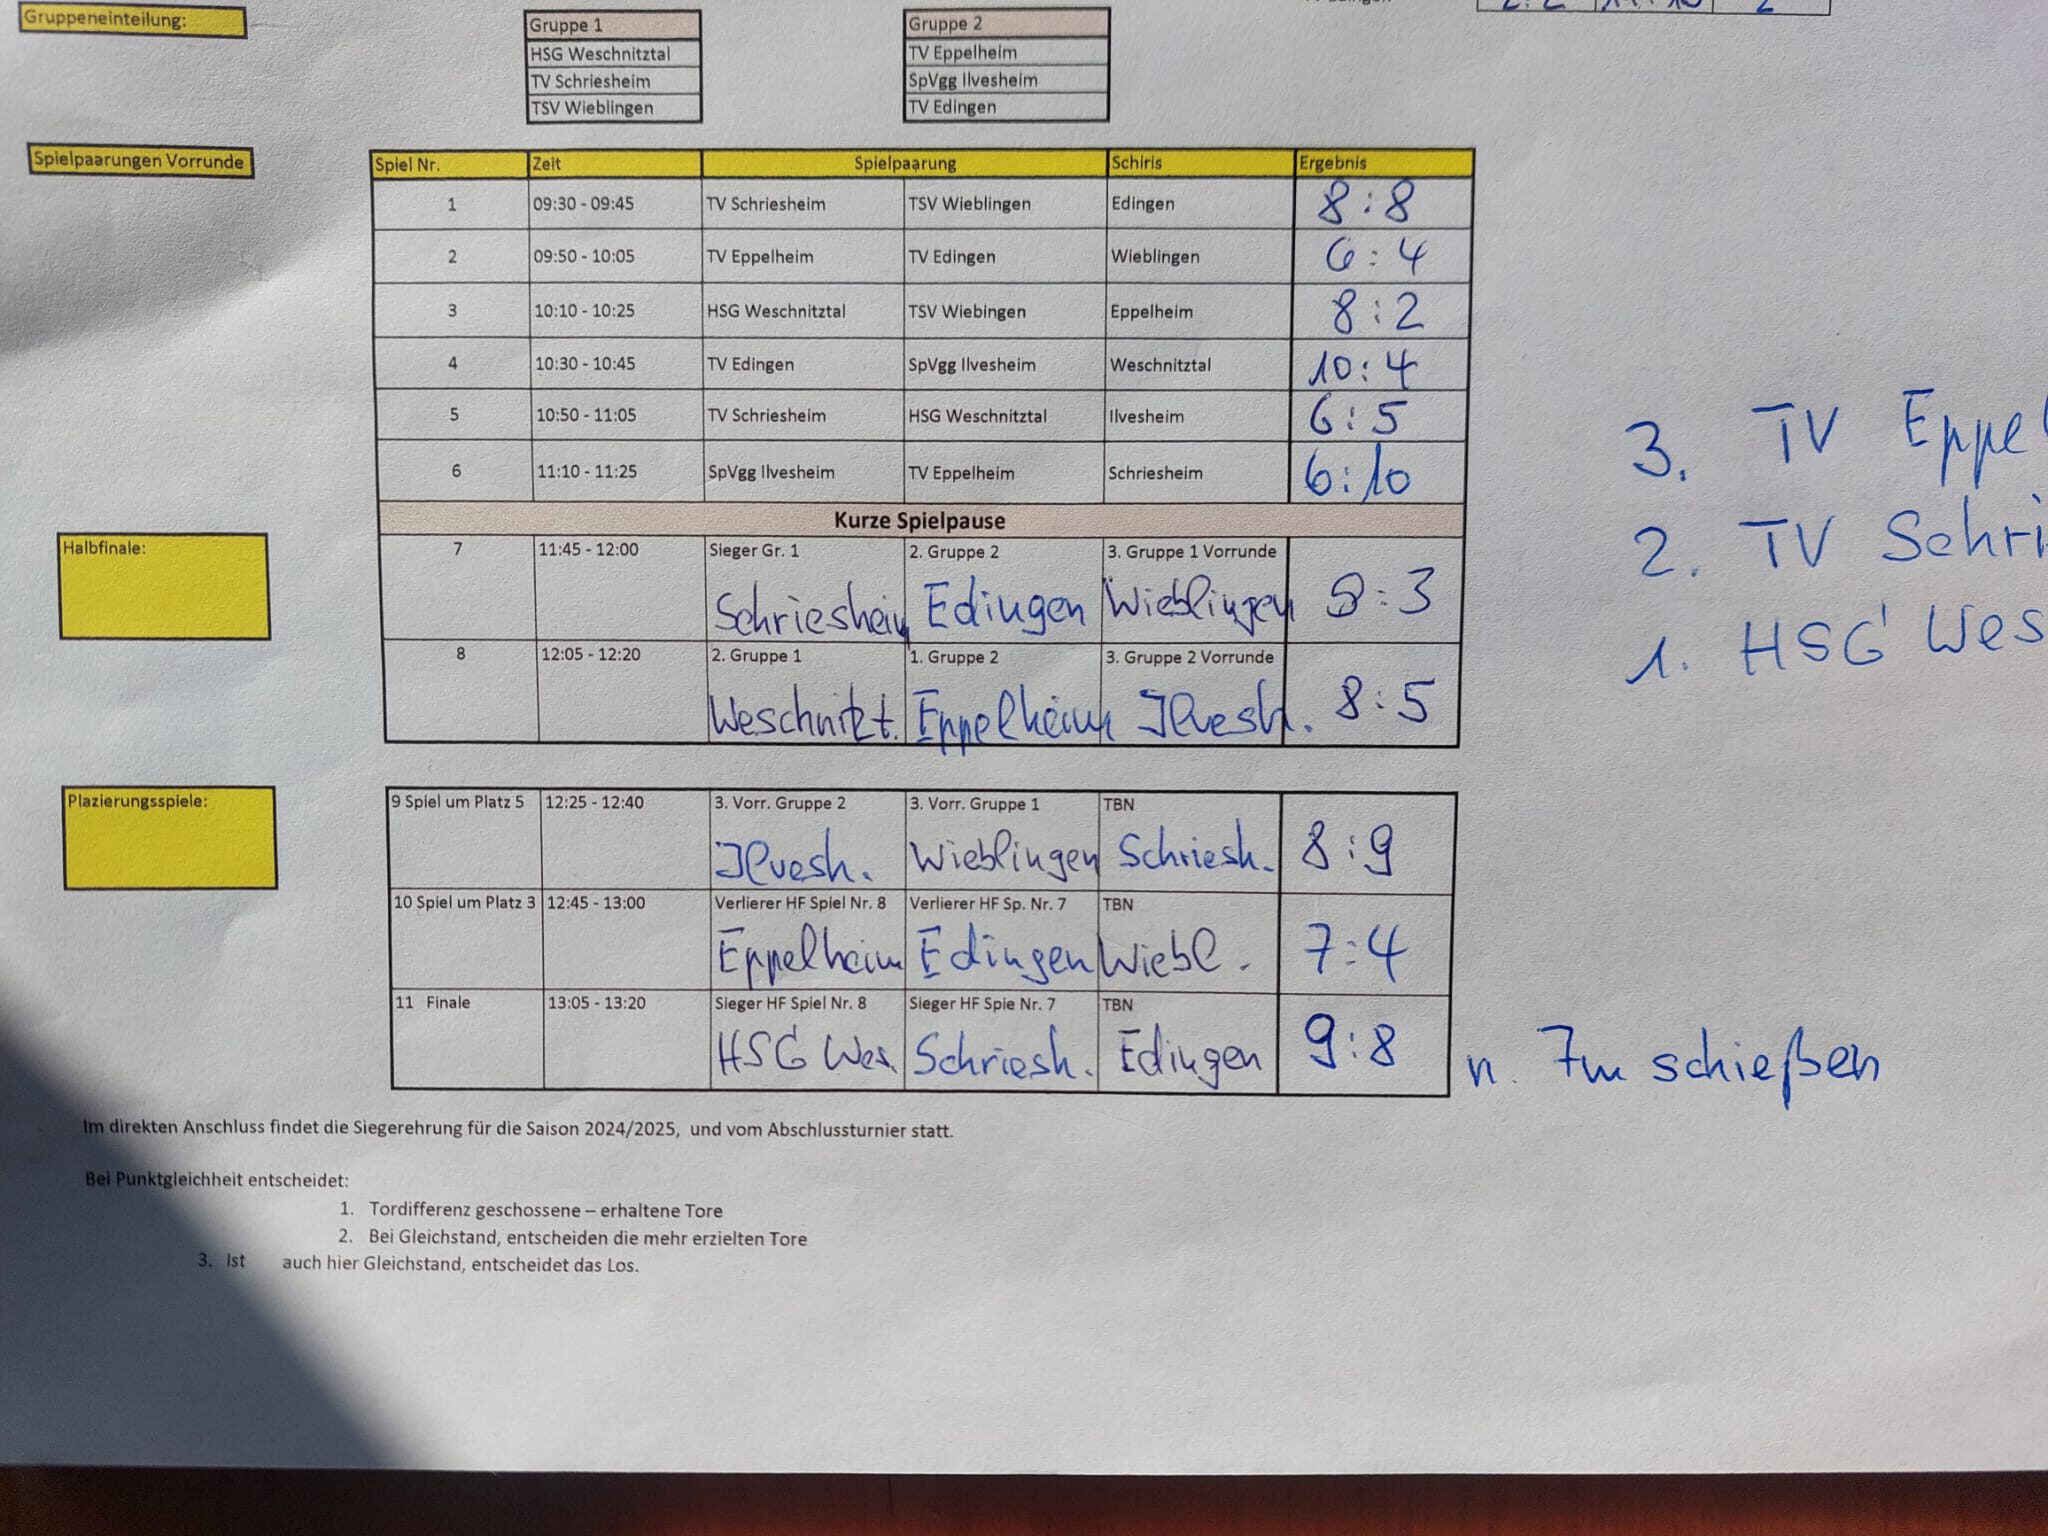 Gruppeneinteilung:
Gruppe 1 Gruppe 2
HSG Weschnitztal TV Eppelheim
TV Schriesheim SpVgg Ilvesheim
TSV Wieblingen TV Edingen
Spielpaarungen Vorrunde
Spiel Nr. Zeit Spielpaarung Schiris Ergebnis
1 09:30 - 09:45 TV Schriesheim TSV Wieblingen Edingen 8:8
2 09:50 - 10:05 TV Eppelheim TV Edingen Wieblingen 6:4
3 10:10 - 10:25 HSG Weschnitztal TSV Wiebingen Eppelheim 8:2
4 10:30 - 10:45 TV Edingen SpVgg Ilvesheim Weschnitztal 10:4
5 10:50 - 11:05 TV Schriesheim HSG Weschnitztal Ilvesheim 6:5
6 11:10 - 11:25 SpVgg Ilvesheim TV Eppelheim Schriesheim 6:10
Kurze Spielpause
Halbfinale:
7 11:45 - 12:00 Sieger Gr. 1 2. Gruppe 2 3. Gruppe 1 Vorrunde
Schriesheim Edingen Wieblingen :3
8 12:05 - 12:20 2. Gruppe 1 1. Gruppe 2 3. Gruppe 2 Vorrunde
Weschnitzt. Eppelheim Ilvesh. 8:5
3. TV Eppel
2. TV Schri
1. HSG Wes
Plazierungsspiele:
9 Spiel um Platz 5 12:25 - 12:40 3. Vorr. Gruppe 2 3. Vorr. Gruppe 1 TBN
Ilvesh. Wieblingen Schriesh. 8:9
10 Spiel um Platz 3 12:45 - 13:00 Verlierer HF Spiel Nr. 8 Verlierer HF Sp. Nr. 7 TBN
Eppelheim Edingen Wiebl. 7:4
11 Finale 13:05 - 13:20 Sieger HF Spiel Nr. 8 Sieger HF Spie Nr. 7 TBN
HSG Wes. Schriesh. Edingen 9:8 n. 7m schießen
Im direkten Anschluss findet die Siegerehrung für die Saison 2024/2025, und vom Abschlussturnier statt.
Bei Punktgleichheit entscheidet:
1. Tordifferenz geschossene – erhaltene Tore
2. Bei Gleichstand, entscheiden die mehr erzielten Tore
3. Ist auch hier Gleichstand, entscheidet das Los.